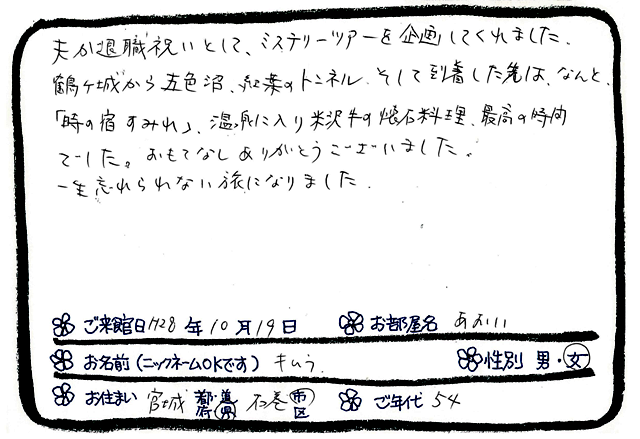 夫が退職祝いとして、ミステリーツアーを企画してくれました。
鶴ヶ城から五色沼、紅葉のトンネル、そして到着した先は、なんと、
「時の宿すみれ」、温泉に入り米沢牛の懐石料理、最高の時間
でした。おもてなしありがとうございました。
一生忘れられない旅になりました。
ご来館日 H28 年 10 月 19 日 お部屋名 あおい
お名前（ニックネームOKです） キムラ 性別 男・女
お住まい 宮城 都・道・府・県 石巻 市・区 ご年代 54